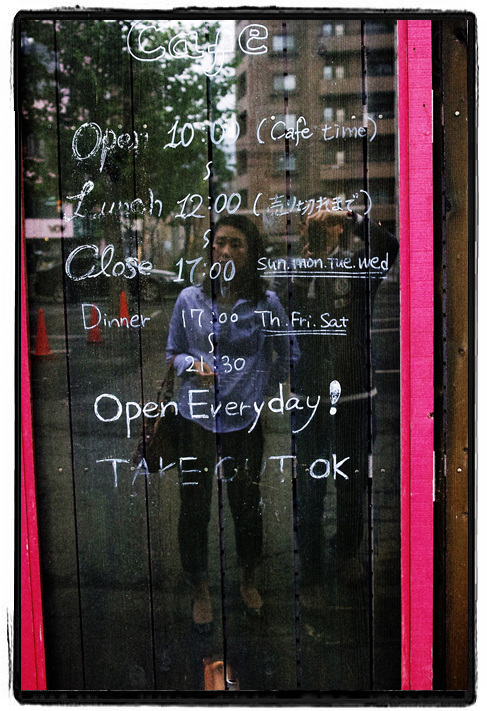 Cafe
Open 10:00 (Cafe time)
〜
Lunch 12:00 (売り切れまで)
〜
Close 17:00 Sun.mon.Tue.Wed
Dinner 17:00 Th.Fri.Sat
〜
21:30
Open Everyday!
TAKE OUT OK